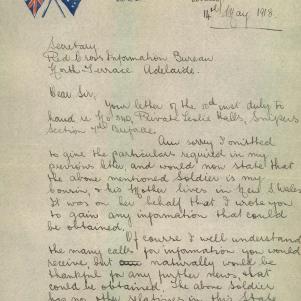 14th May 1918.
Secretary
Red Cross Information Bureau
North Terrace Adelaide.
Dear Sir,
Your letter of the 10th inst duly to
hand re No 540, Private Leslie Halls, Snipers
Section 4th Brigade.
Am sorry I omitted
to give the particulars required in my
previous letter, and would now state that
the above mentioned Soldier is my
cousin, & his Mother lives in New S Wales
It was on her behalf that I wrote you
to gain any information that could
be obtained.
Of course I well understand
the many calls for information you would
receive, but naturally would be
thankful for any further news, that
could be obtained. The above Soldier
has no other relatives in this State